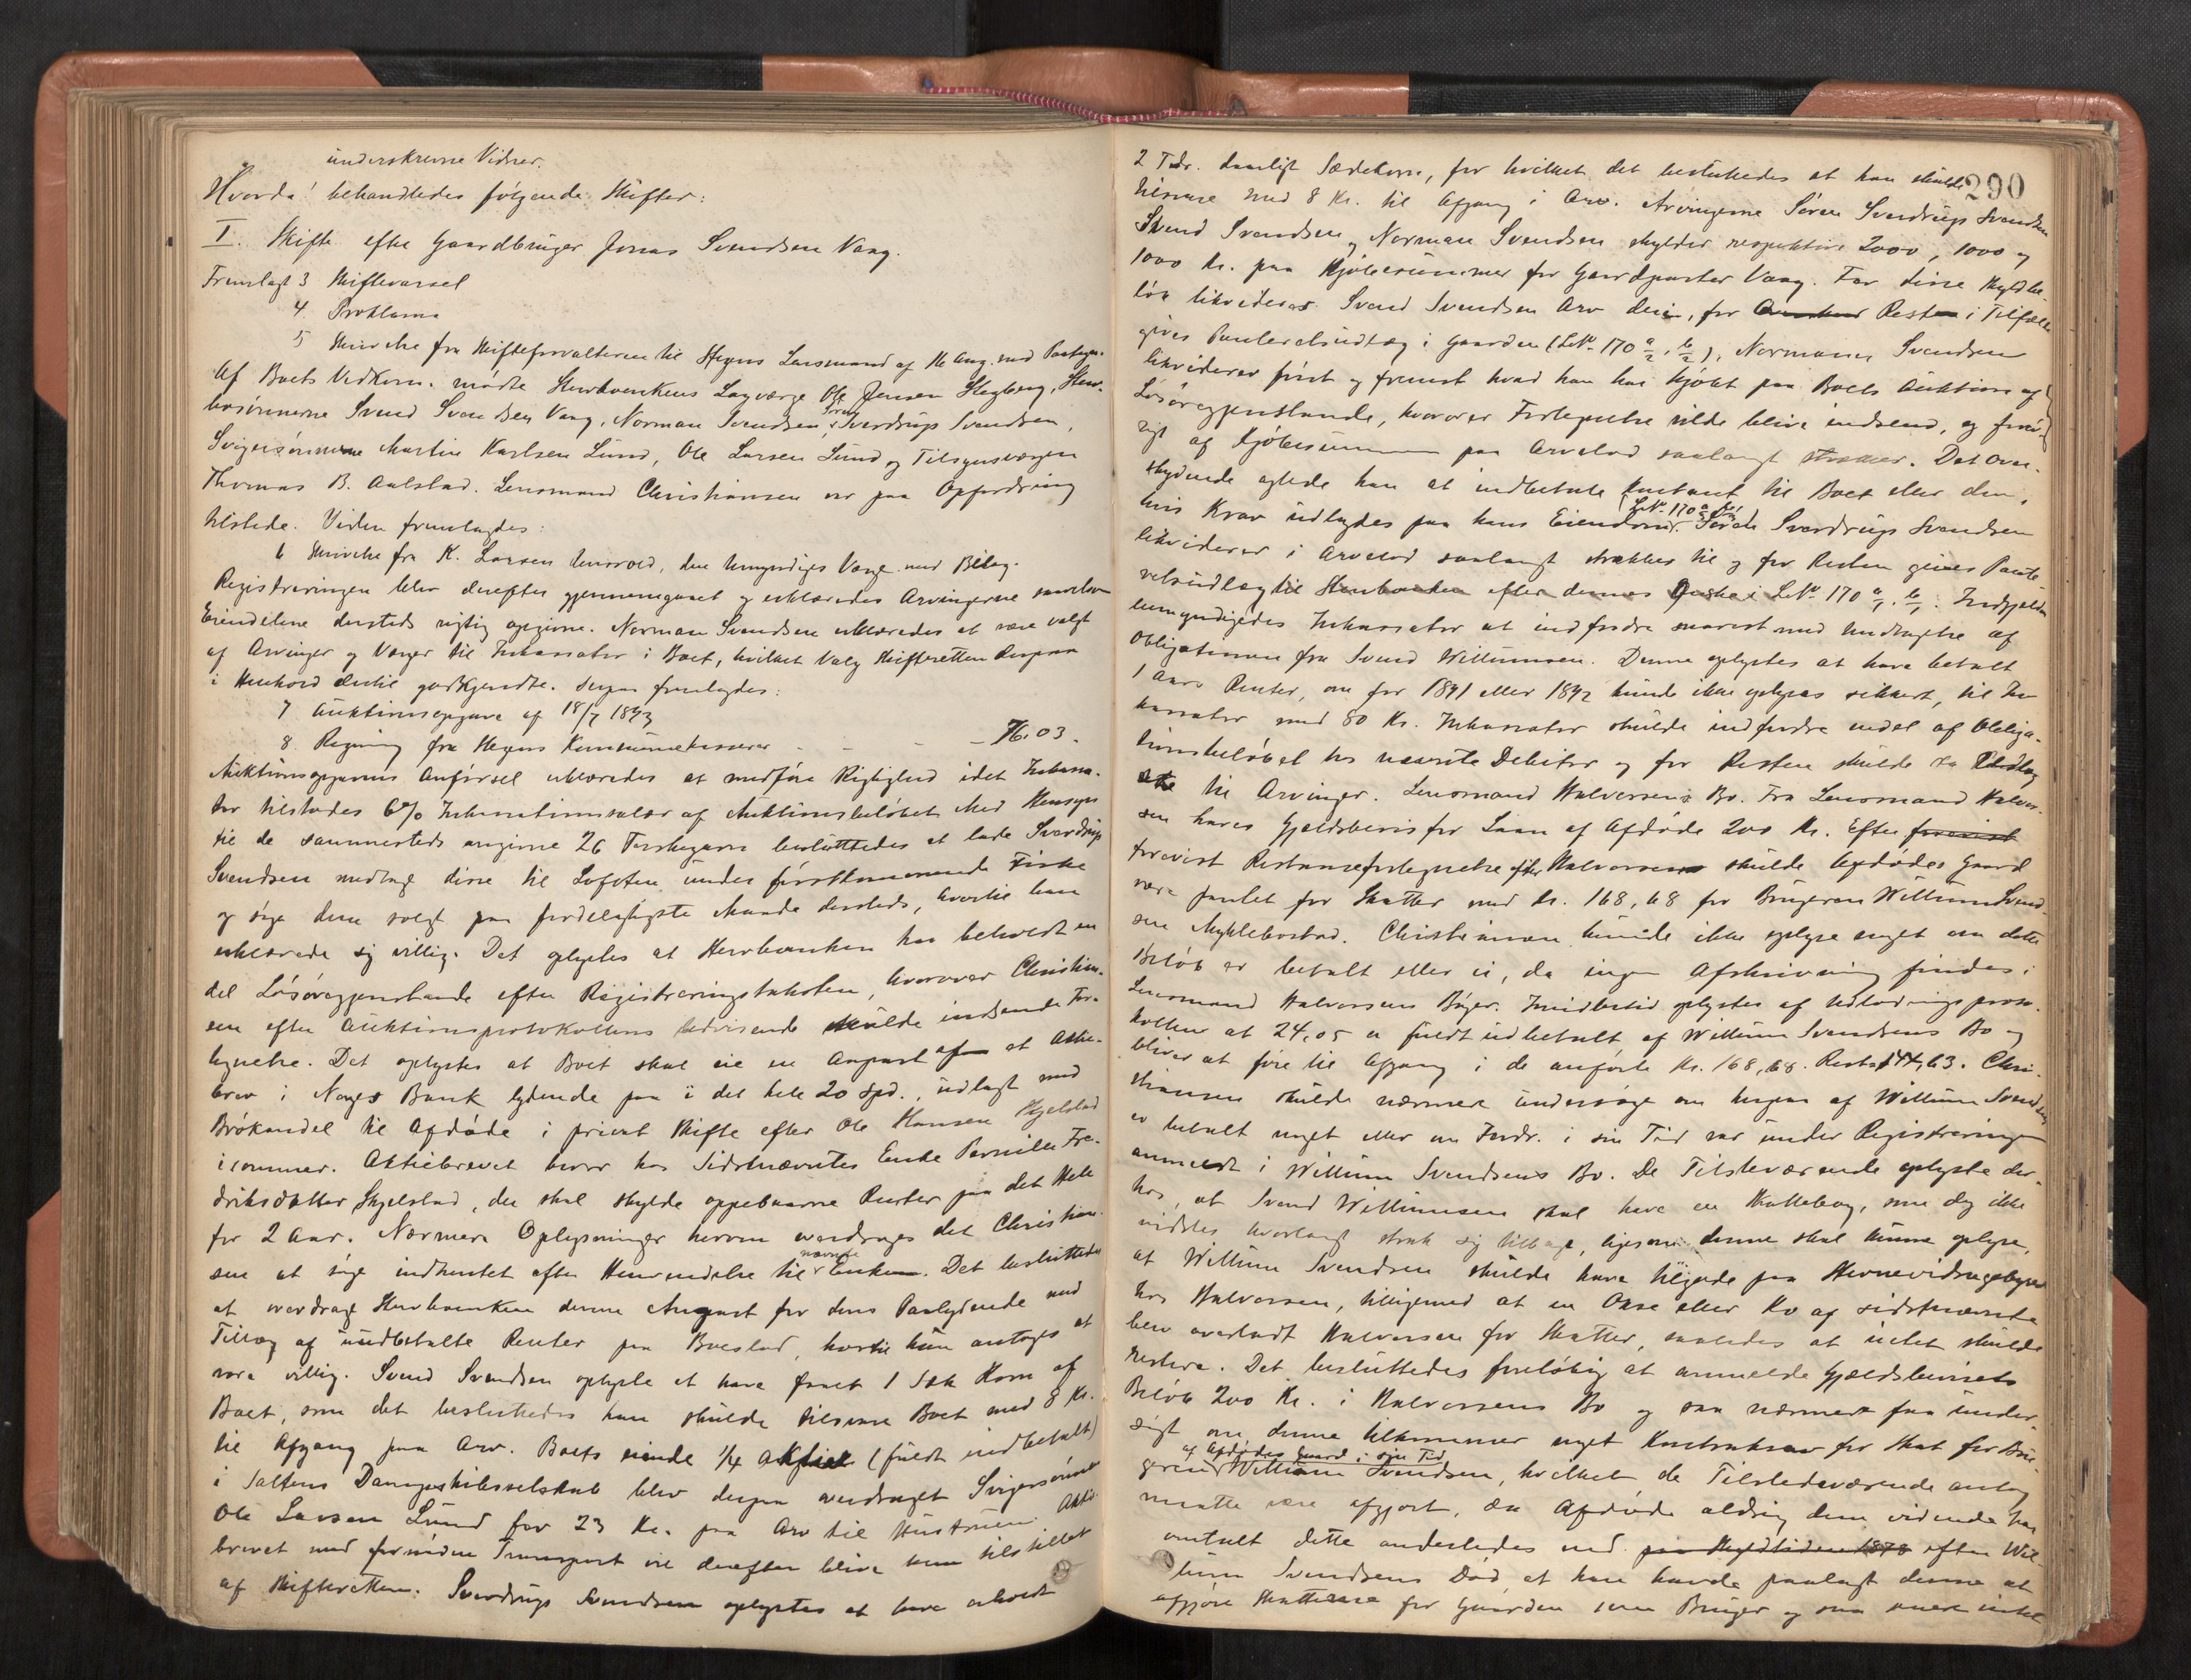 underskrevne Vidner.
Hvorda! behandledes følgende Skifter:
I. Skifte efter Gaardbruger Jonas Svendsen Vaag.
Fremlagt 3 Skiftevarsel
4 Proklama
5 Skrivelse fra Skifteforvalteren til Steigens Lensmand af 16 Aug. med Paategn.
Af Boets Vedkom. mødte Enkens Lagværge Ole Jensen
sønnerne Svend Svendsen Vaag, Norman Svendsen, Søren Sverdrup Svendsen,
Svigersønnerne Martin Karlsen Lund, Ole Larsen Lund og Tilsynsværgen
Thomas B. Aalstad. Lensmand Christiansen var paa Opfordring
tilstede. Videre fremlagdes:
6 Skrivelse fra K. Larsen, den Umyndiges Værge med Bilag.
Registreringen blev derefter gjennemgaaet og erklæredes Arvingerne
Eiendelene dersteds rigtig opgivne. Norman Svendsen erklæredes at være valgt
af Arvinger og Værger til Inkassator i Boet, hvilket Valg Skifteretten
i Henhold dertil godkjendte. fremlagdes:
7 Auktionsopgave af 18/7 1893
8. Regning fra Steigens Kommunekasserer - - - - 76.03.
Auktionsopgavens Anførsel erklæredes at medføre Rigtighed idet Inkassa-
tor tilstodes 6% Inkassationssalær af Auktionsbeløbet. Med Hensyn
til de sammesteds angivne 26 besluttedes at lade Sverdrup
Svendsen medtage disse til Lofoten under førstkommende Fiske
og søge dem solgt paa fordelagtigste Maade dersteds, hvortil han
erklærede sig villig. Det oplystes at Enken har beholdt en
del Løsøregjenstande efter Registreringstaksten, hvorover Christian-
sen efter Auktionsprotokollens Udvisende skulde indsende For-
tegnelse. Det oplystes at Boet skal eie en Anpart af et Aktie-
brev i Norges Bank lydende paa i det hele 20 Spd., udlagt med
Brøkandel til Afdøde i privat Skifte efter Ole Hansen Skjelstad
i sommer. Aktiebrevet beror hos Sidstnævntes Enke Pernille Fre-
driksdatter Skjelstad, der skal skylde oppebaarne Renter paa det Hele
for 2 Aar. Nærmere Oplysninger herom overdroges det Christian-
sen at søge indhentet efter Henvendelse til nævnte Enke. Det besluttedes
at overdrage Enken denne Anpart for dens Paalydende med
Tillæg af uudbetalte Renter paa Boeslod, hvortil hun antoges at
være villig. Svend Svendsen oplyste at have faaet 1 Sæk Korn af
Boet, som det besluttedes han skulde tilsvare Boet med 8 Kr.
til Afgang paa Arv. Boets eiende 1/4 Aktie (fuldt indbetalt)
i Saltens Dampskibsselskab blev derpaa overdraget Svigersønnen
Ole Larsen Lund for 23 Kr. paa Arv til Hustruen. Aktie-
brevet med fornøden Transport vil derefter blive ham tilstillet
af Skifteretten. Sverdrup Svendsen oplystes at have erholdt
290
2 Tdr. daarligt Sædekorn, for hvilket det besluttedes at han skulde
tilsvare med 8 Kr. til Afgang i Arv. Arvingerne Søren Sverdrup Svendsen
Svend Svendsen og Norman Svendsen skylder respektive 2000, 1000 og
1000 Kr. paa Kjøbesummer for Gaardparter Vaag. For disse Skyldbe-
løb likviderer Svend Svendsen Arv deri, for Resten i Tilfælde
gives Panteretsudlæg i Gaarden (LNo 170 a/2, b/2), Norman Svendsen
likviderer først og fremst hvad han har kjøbt paa Boets Auktion af
Løsøregjenstande, hvorover Fortegnelse vilde blive indsend, og forøv-
rigt af Kjøbesummen paa Arvelod saalangt strækker. Det Over-
skydende agtede han at indbetale kontant til Boet eller den,
hvis Krav udlagdes paa hans Eiendom (LNo 170). Søren Sverdrup Svendsen
likviderer i Arvelod saalangt strækker til og for Resten gives Pante-
retsudlæg til efter dennes Ønske i LNo 170 a/1, b/1. Indgjælden
bemyndigedes Inkassator at indfordre snarest med Undtagelse af
Obligationen fra Svend Willumsen. Denne oplystes at have betalt
1 Aars Renter, om for 1891 eller 1892 kunde ikke oplyses sikkert, til In-
kassator med 80 Kr. Inkassator skulde indfordre endel af Obliga-
tionsbeløbet hos nævnte Debitor og for Resten skulde sa Udlæg
ske til Arvinger. Lensmand Halvorsens Bo. Fra Lensmand Halvor-
sen haves Gjældsbevis for Laan af Afdøde 200 Kr. Efter forevist
forevist Restanseforteg­nelse efter Halvorsen skulde Afdødes Gaard
være pantet for Skatter med Kr. 168,68 for Brugeren Willum Svend-
sen Myklebostad. Christiansen kunde ikke oplyse noget om dette
Beløb er betalt eller ei, da ingen Afskrivning findes i
Lensmand Halvorsens Bøger. Imidlertid oplystes af Udlodningsproto-
kollen at 24,05 er fuldt udbetalt af Willum Svendsens Bo og
bliver at føre til Afgang i de anførte Kr. 168,68. Rest 144,63. Chri-
stiansen skulde nærmere undersøge om herpaa af Willum Svendsen
er betalt noget eller om Fordr. i sin Tid var under Registreringen
anmeldt i Willum Svendsens Bo. De Tilstedeværende oplyste der-
hos, at Svend Willumsen skal have en Skattebog, som dog ikke
vidstes hvorlangt strak sig tilbage, ligesom denne skal kunne oplyse,
at Willum Svendsen skulde have tilgode paa
hos Halvorsen, tilligemed at en Okse eller Ko af sidstnævnte
blev overladt Halvorsen for Skatter, saaledes at intet skulde
restere. Det besluttedes foreløbig at anmelde Gjældsbevisets
Beløb 200 Kr. i Halvorsens Bo og saa nærmere faa under-
søgt om denne tilkommer noget Kontrakrav for Skat for Bru-
geren af Afdødes Gaard i sin Tid Willum Svendsen, hvilket de Tilstedeværende antog
maatte være afgjort, da Afdøde aldrig dem vidende har
omtalt dette anderledes end paa Skyldtiden 1878 efter Wil-
lum Svendsens Død, at han havde paalagt denne at
afgjøre Skatterne for Gaarden som Bruger og saa